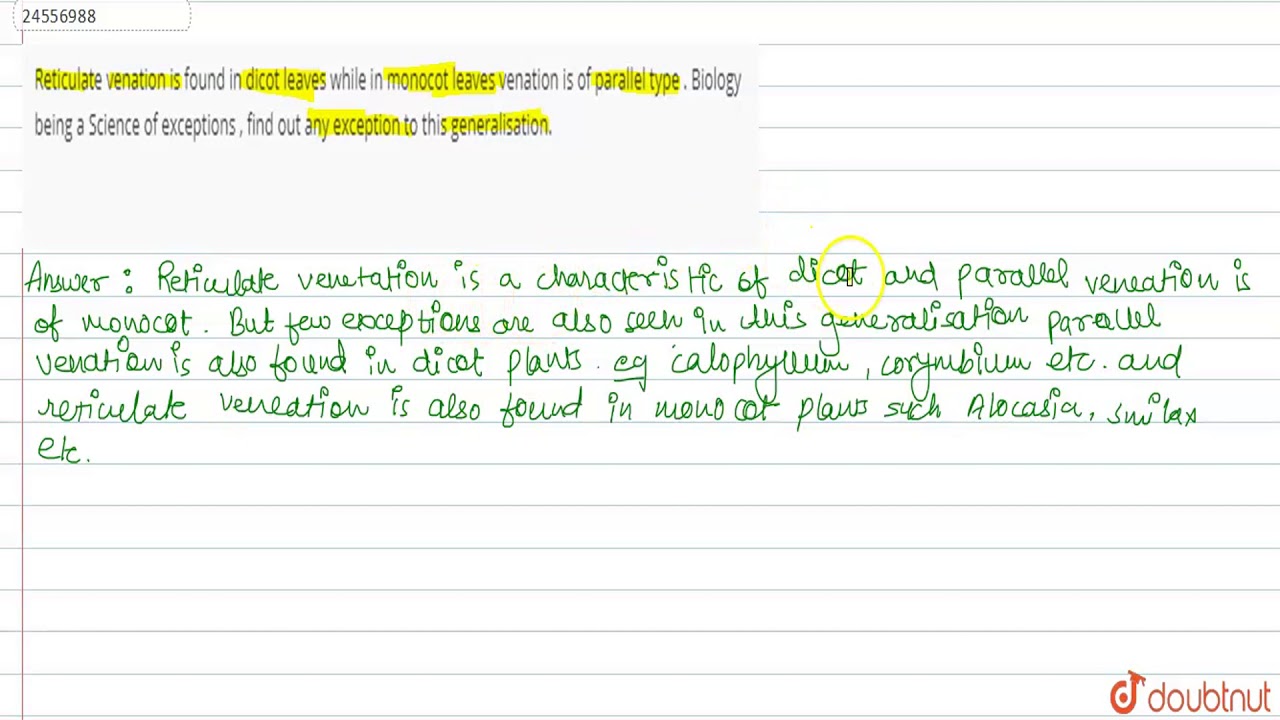 24556988
Reticulate venation is found in dicot leaves while in monocot leaves venation is of parallel type . Biology
being a Science of exceptions , find out any exception to this generalisation.
Answer : Reticulate venetation is a characteristic of dicot and parallel veneation is
of monocot. But few exceptions are also seen in this generalisation parallel
venation is also found in dicot plants. eg calophyllum, corymbium etc. and
reticulate veneation is also found in monocot plants such Alocasia, smilax
etc.
doubtnut